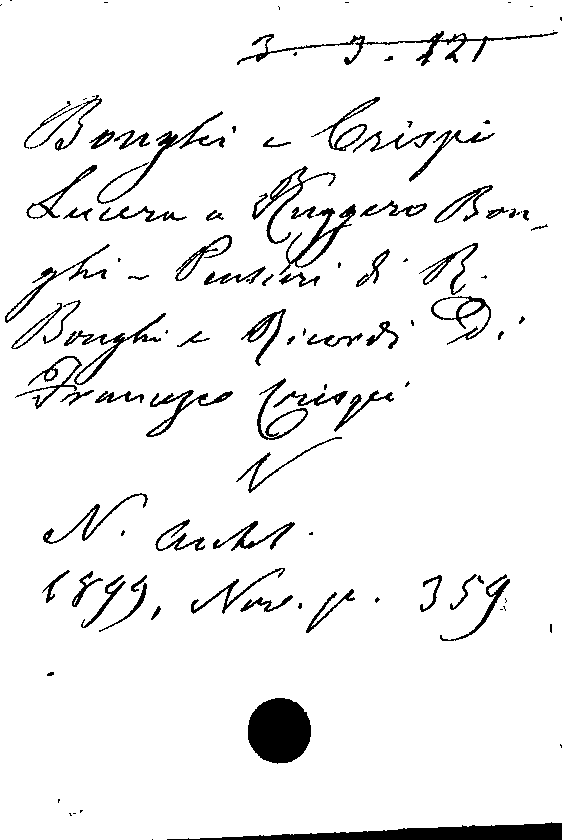 3. 3. 121
Bonghi e Crispi
Lucera a Ruggero Bon-
ghi - Pensieri di R.
Bonghi e Ricordi Di
Francesco Crispi
V
N. Antol.
1899, Nov. p. 359